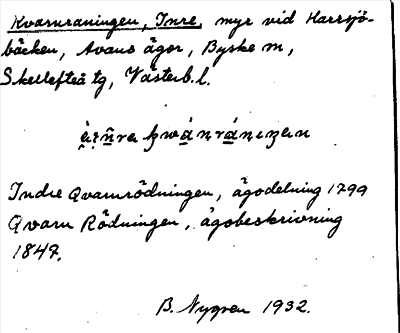 Kvarnraningen, Inre, myr vid Harrsjö-
bäcken, Avaus ägor, Byske sn,
Skellefteå tg, Västerb. l.
Indre Qvarnrödningen, ägodelning 1799
Qvarn Rödningen, ägobeskrivning
1847.
B. Nygren 1932.